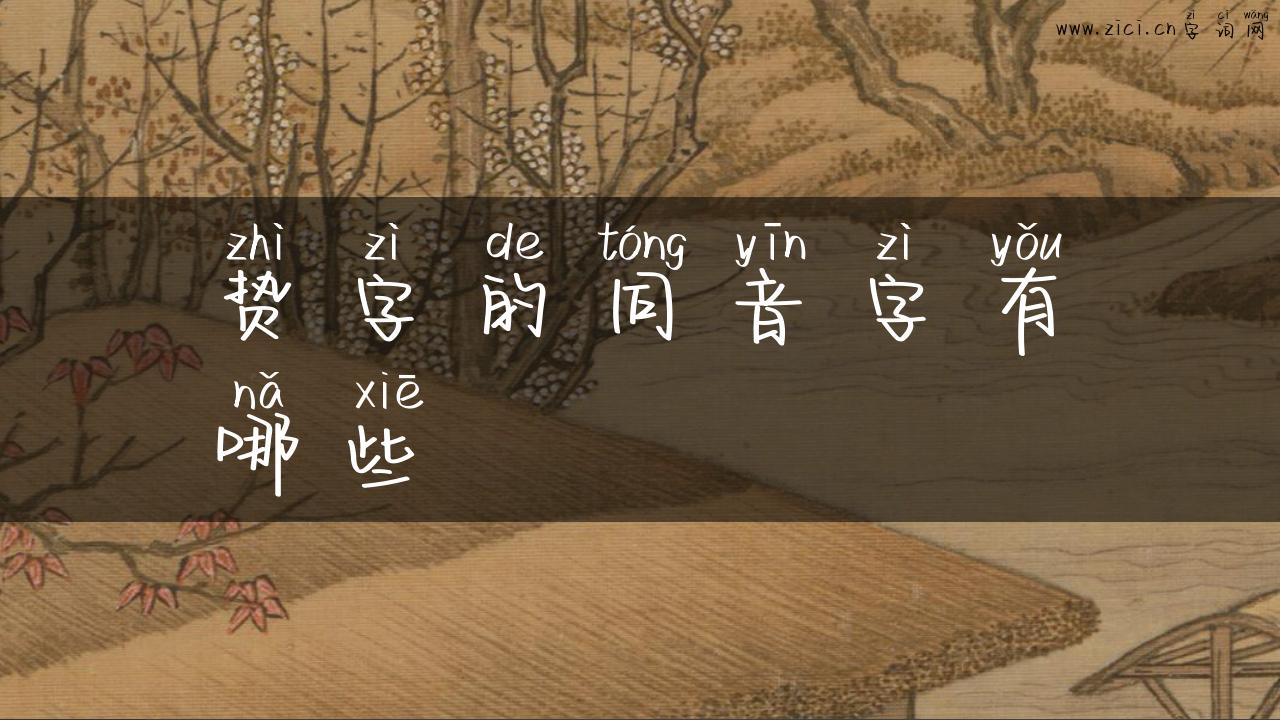 zì cí wǎng
www.zici.cn字词网
zhì zì de tóng yīn zì yǒu
贽字的同音字有
nǎ xiē
哪些